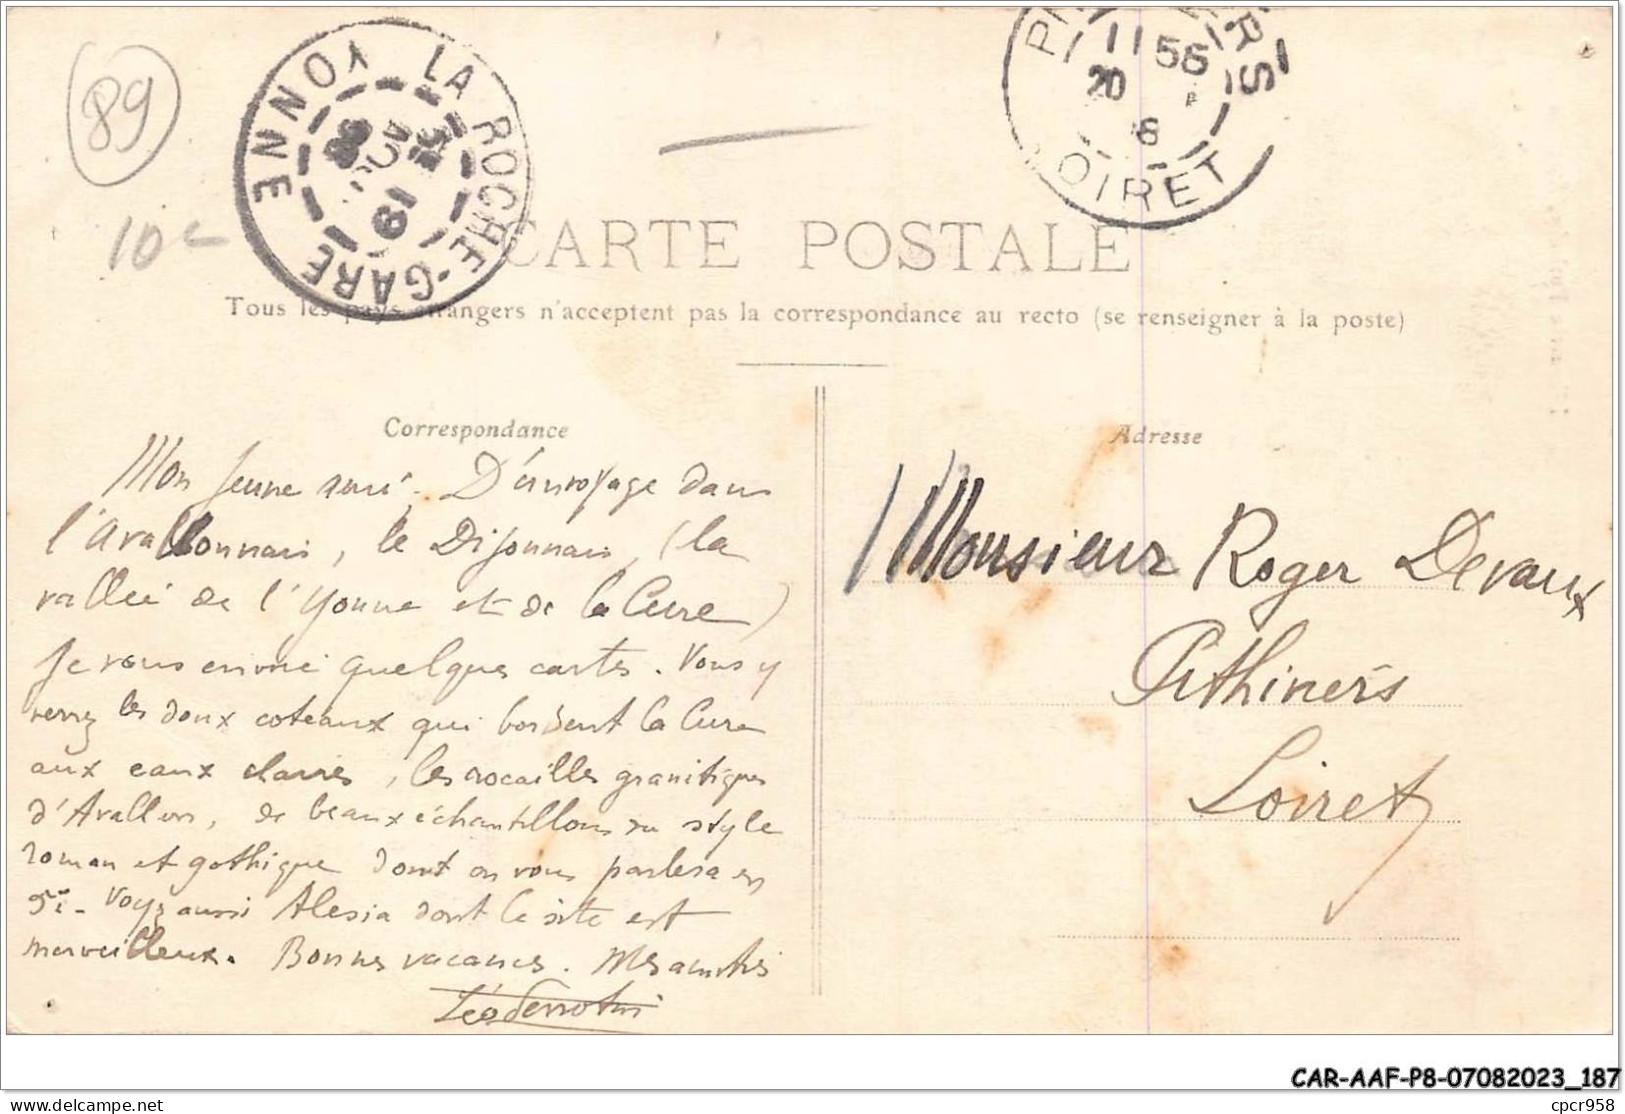 89
10c
LA ROCHE-GARE YONNE
19
20
LOIRET
CARTE POSTALE
Tous les pays étrangers n'acceptent pas la correspondance au recto (se renseigner à la poste)
Correspondance
Adresse
Mon jeune ami. D'un voyage dans
l'Avallonnais, le Dijonnais, (la
vallée de l'Yonne et de la Cure)
Je vous envoie quelques cartes. Vous y
verrez les doux coteaux qui bordent la Cure
aux eaux claires, les rocailles granitiques
d'Avallon, de beaux échantillons du style
roman et gothique dont on vous parlera en
5e. Voyez aussi Alesia dont le site est
merveilleux. Bonnes vacances. Mes amitiés
Monsieur Roger Devaux
Pithiviers
Loiret
CAR-AAF-P8-07082023_187
www.delcampe.net
cpcr958